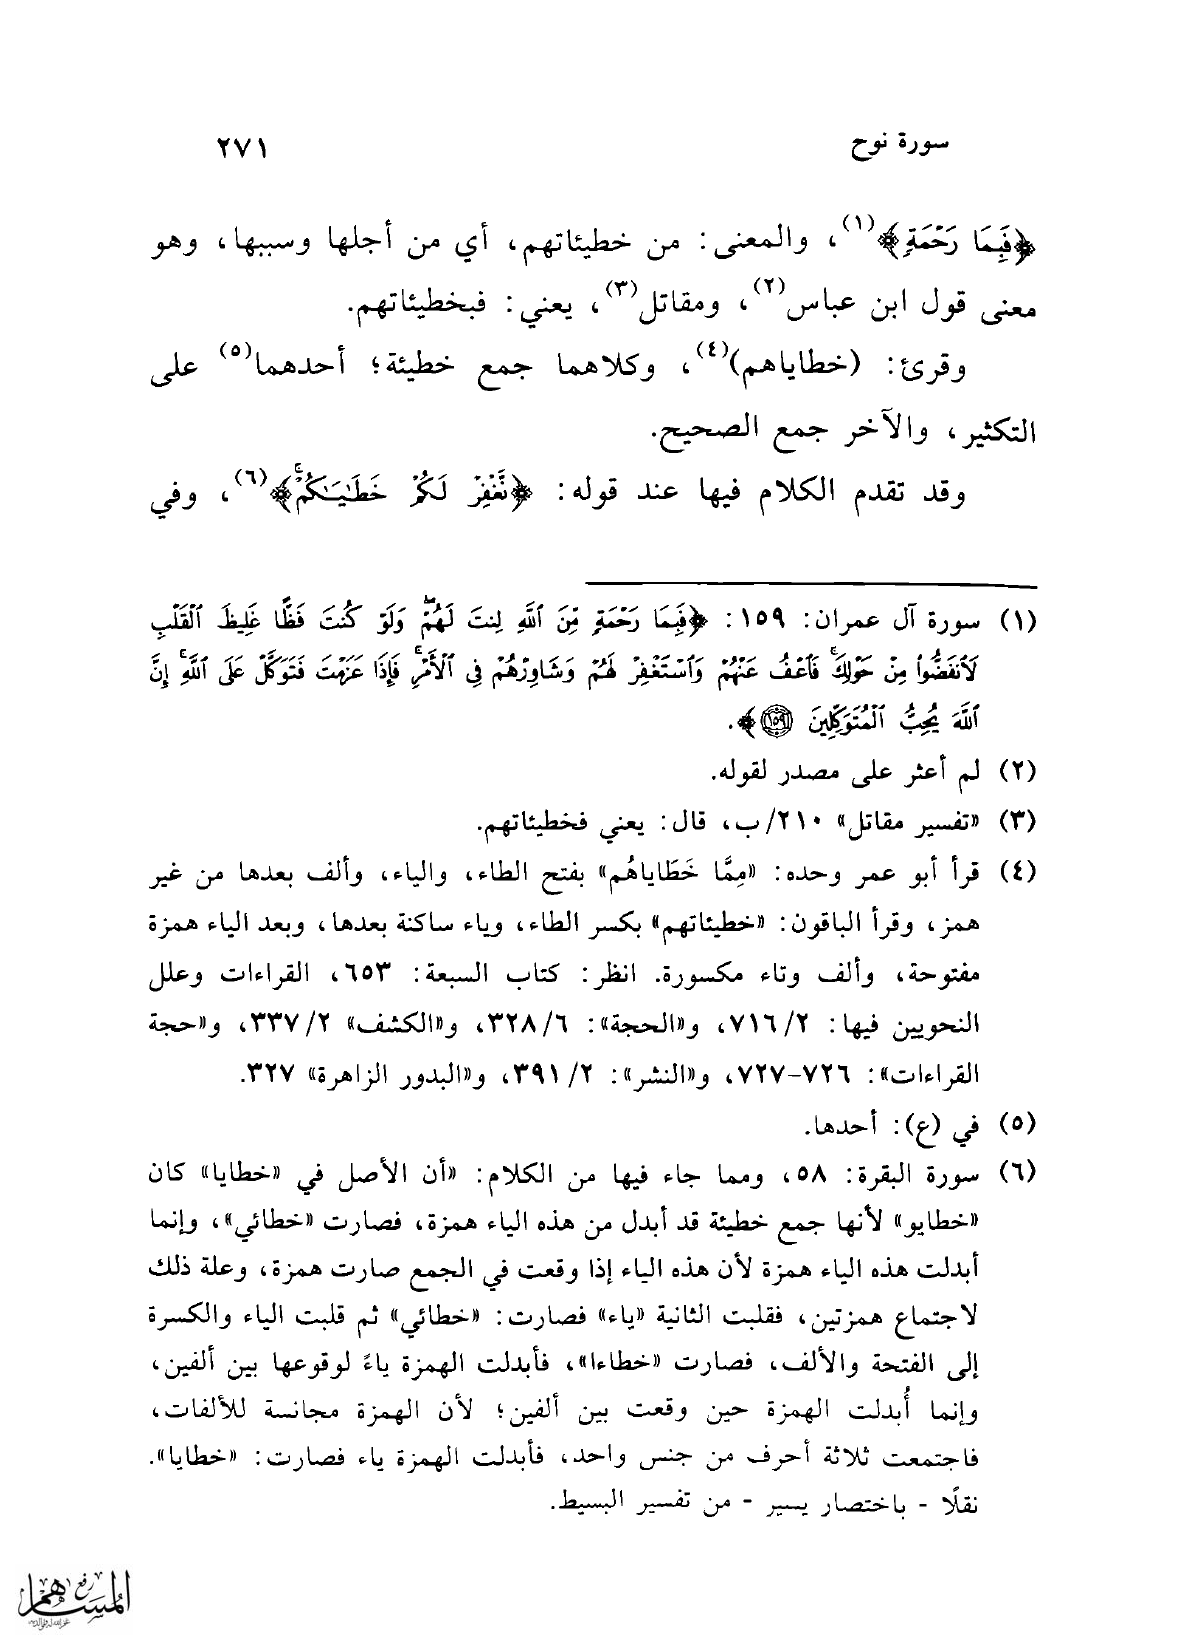 سورة نوح
٢٧١
﴿فَبِمَا رَحْمَةٍ﴾(١)، والمعنى: من خطيئاتهم، أي من أجلها وسببها، وهو
معنى قول ابن عباس(٢)، ومقاتل(٣)، يعني: فبخطيئاتهم.
وقرئ: (خطاياهم)(٤)، وكلاهما جمع خطيئة؛ أحدهما(٥) على
التكثير، والآخر جمع الصحيح.
وقد تقدم الكلام فيها عند قوله: ﴿نَّغْفِرْ لَكُمْ خَطَٰيَٰكُمْ﴾(٦)، وفي
(١) سورة آل عمران: ١٥٩: ﴿فَبِمَا رَحْمَةٍ مِّنَ ٱللَّهِ لِنتَ لَهُمْ وَلَوْ كُنتَ فَظًّا غَلِيظَ ٱلْقَلْبِ
لَٱنفَضُّوا۟ مِنْ حَوْلِكَ فَٱعْفُ عَنْهُمْ وَٱسْتَغْفِرْ لَهُمْ وَشَاوِرْهُمْ فِى ٱلْأَمْرِ فَإِذَا عَزَمْتَ فَتَوَكَّلْ عَلَى ٱللَّهِ إِنَّ
ٱللَّهَ يُحِبُّ ٱلْمُتَوَكِّلِينَ ١٥٩﴾.
(٢) لم أعثر على مصدر لقوله.
(٣) «تفسير مقاتل» ٢١٠/ب، قال: يعني فخطيئاتهم.
(٤) قرأ أبو عمر وحده: «مِمَّا خَطَاياهُم» بفتح الطاء، والياء، وألف بعدها من غير
همز، وقرأ الباقون: «خطيئاتهم» بكسر الطاء، وياء ساكنة بعدها، وبعد الياء همزة
مفتوحة، وألف وتاء مكسورة. انظر: كتاب السبعة: ٦٥٣، القراءات وعلل
النحويين فيها: ٧١٦/٢، و«الحجة»: ٣٢٨/٦، و«الكشف» ٣٣٧/٢، و«حجة
القراءات»: ٧٢٦-٧٢٧، و«النشر»: ٣٩١/٢، و«البدور الزاهرة» ٣٢٧.
(٥) في (ع): أحدها.
(٦) سورة البقرة: ٥٨، ومما جاء فيها من الكلام: «أن الأصل في «خطايا» كان
«خطايو» لأنها جمع خطيئة قد أبدل من هذه الياء همزة، فصارت «خطائي»، وإنما
أبدلت هذه الياء همزة لأن هذه الياء إذا وقعت في الجمع صارت همزة، وعلة ذلك
لاجتماع همزتين، فقلبت الثانية «ياء» فصارت: «خطائي» ثم قلبت الياء والكسرة
إلى الفتحة والألف، فصارت «خطاءا»، فأبدلت الهمزة ياءً لوقوعها بين ألفين،
وإنما أُبدلت الهمزة حين وقعت بين ألفين؛ لأن الهمزة مجانسة للألفات،
فاجتمعت ثلاثة أحرف من جنس واحد، فأبدلت الهمزة ياء فصارت: «خطايا».
نقلًا - باختصار يسير - من تفسير البسيط.